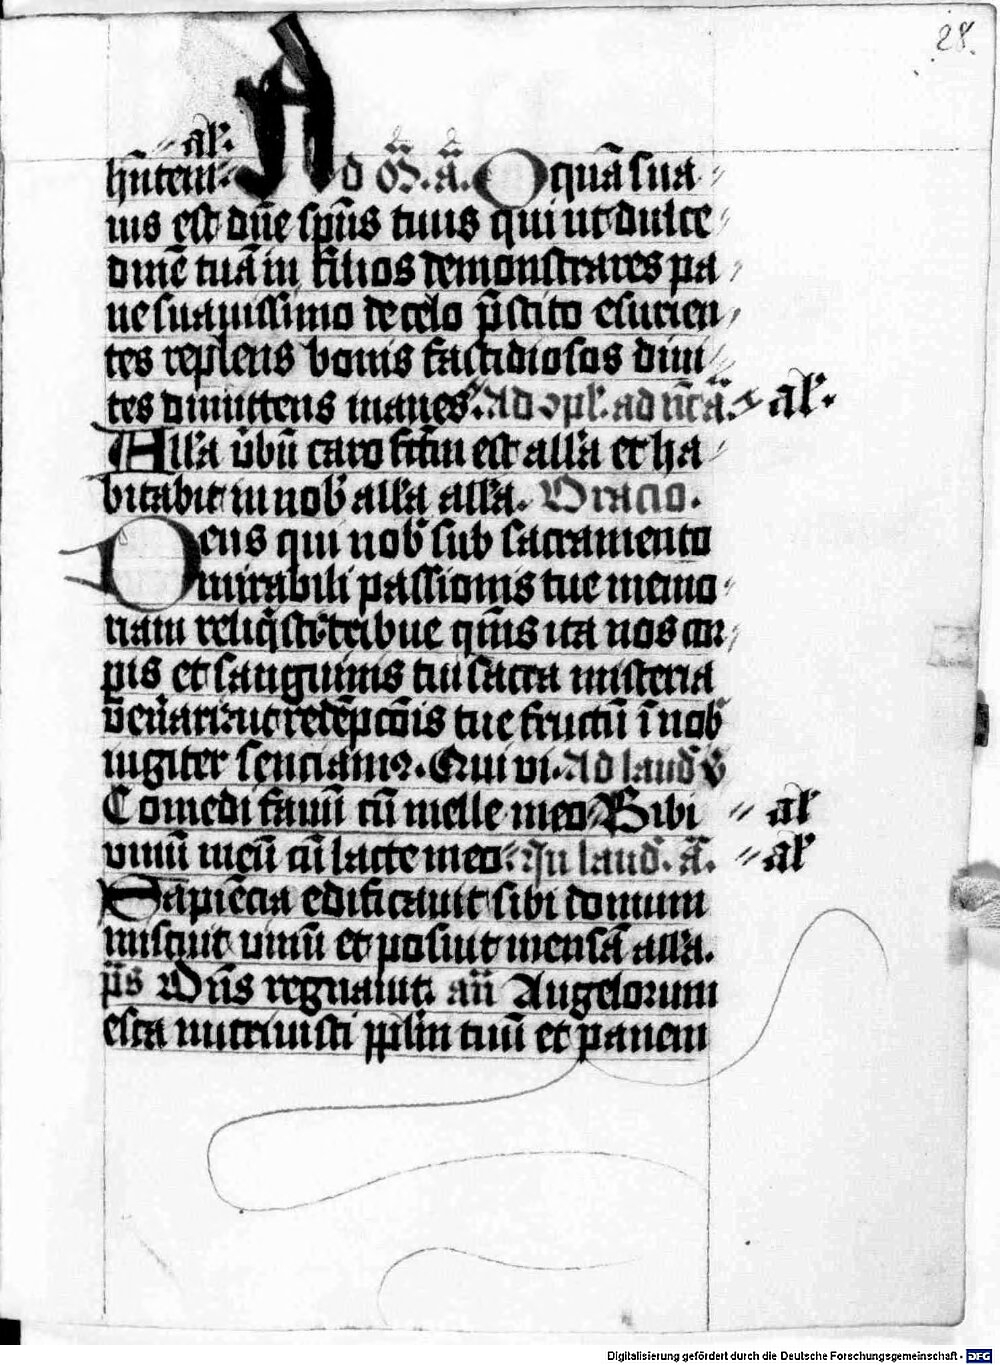 28.
al'.
hn̄tem: Ad m̄. ā. O quā sua
uis est dn̄e spūs tuus qui ut dulce
dinē tuā in filios demonstrares pa
ne suauissimo de celo p̄stito esurien
tes repleus bonis fastidiosos diui
tes dimittens inanes. Ad opl'. ad n̄cā. al'.
Alla ūbū caro fc̄m est alla et ha
bitabit in nob' alla alla. Oracio.
Deus qui nob' sub sacramento
mirabili passionis tue memo
riam reliq̄sti: tribue qm̄s ita nos cor
pis et sanguinis tui sacra misteria
ūenari: ut redēpcōis tue fructū ī nob'
iugiter senciamꝰ. Qui vi. Ad laud' v̄
Comedi fauū cū melle meo Bibi al'
uinū meū cū lacte meo: In laud'. ā. al'
Sapiēcia edificauit sibi domum
miscuit uinū et posuit mensā alla.
p̄s Dn̄s regnauit. an̄ Angelorum
esca nutriuisti ppl̄m tuū et panem
Digitalisierung gefördert durch die Deutsche Forschungsgemeinschaft - DFG